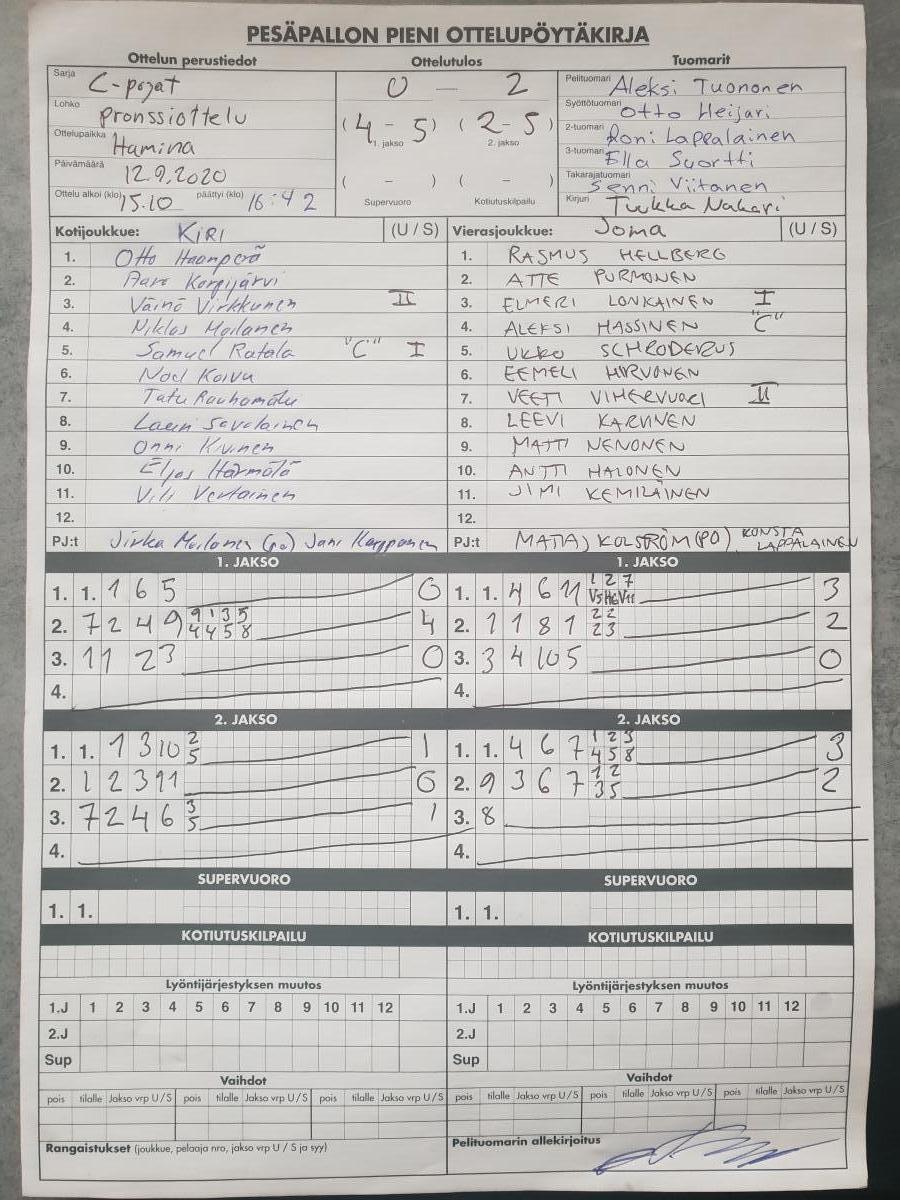 PESÄPALLON PIENI OTTELUPÖYTÄKIRJA
Ottelun perustiedot Ottelutulos Tuomarit
Sarja C-pojat
Lohko Pronssiottelu
Ottelupaikka Hamina
Päivämäärä 12.9.2020
Ottelu alkoi (klo) 15.10 päättyi (klo) 16:42
0 — 2
(4 - 5) (2 - 5)
1. jakso 2. jakso
( - ) ( - )
Supervuoro Kotiutuskilpailu
Pelituomari Aleksi Tuononen
Syöttötuomari Otto Heijari
2-tuomari Roni Lappalainen
3-tuomari Ella Suortti
Takarajatuomari Senni Viitanen
Kirjuri Tuukka Nakari
Kotijoukkue: KIRI (U / S)
1. Otto Haanperä
2. Aaro Korpijärvi
3. Väinö Virkkunen II
4. Niklas Moilanen
5. Samuel Ratala "C" I
6. Noel Koivu
7. Tatu Rauhamäki
8. Lauri Savolainen
9. Onni Kivinen
10. Eljas Härmälä
11. Vili Vertainen
12.
PJ:t Jirka Moilanen (pj) Jani Karpponen
Vierasjoukkue: Joma (U / S)
1. RASMUS HELLBERG
2. ATTE PURMONEN
3. ELMERI LONKAINEN I
4. ALEKSI HASSINEN "C"
5. UKKO SCHRODERUS
6. EEMELI HIRVONEN
7. VEETI VIHERVUORI II
8. LEEVI KARVINEN
9. MATTI NENONEN
10. ANTTI HALONEN
11. JIMI KEMILÄINEN
12.
PJ:t KOLSTRÖM (PO), KONSTA LAPPALAINEN
1. JAKSO 1. JAKSO
1. 1. 1 6 5 0
2. 7 2 4 9 9 1 3 5 4 4 5 8 4
3. 11 2 3 0
4.
1. 1. 4 6 11 1 2 7 V5 H6 V11 3
2. 1 1 8 1 22 23 2
3. 3 4 10 5 0
4.
2. JAKSO 2. JAKSO
1. 1. 1 3 10 2 5 1
2. 1 2 3 11 0
3. 7 2 4 6 3 5 1
4.
1. 1. 4 6 7 1 2 3 4 5 8 3
2. 9 3 6 7 12 35 2
3. 8
4.
SUPERVUORO SUPERVUORO
1. 1. 1. 1.
KOTIUTUSKILPAILU KOTIUTUSKILPAILU
Lyöntijärjestyksen muutos Lyöntijärjestyksen muutos
1.J 1 2 3 4 5 6 7 8 9 10 11 12 1.J 1 2 3 4 5 6 7 8 9 10 11 12
2.J 2.J
Sup Sup
Vaihdot Vaihdot
pois tilalle Jakso vrp U / S pois tilalle Jakso vrp U / S pois tilalle Jakso vrp U / S pois tilalle Jakso vrp U / S pois tilalle Jakso vrp U / S pois tilalle Jakso vrp U / S
Rangaistukset (joukkue, pelaaja nro, jakso vrp U / S ja syy) Pelituomarin allekirjoitus